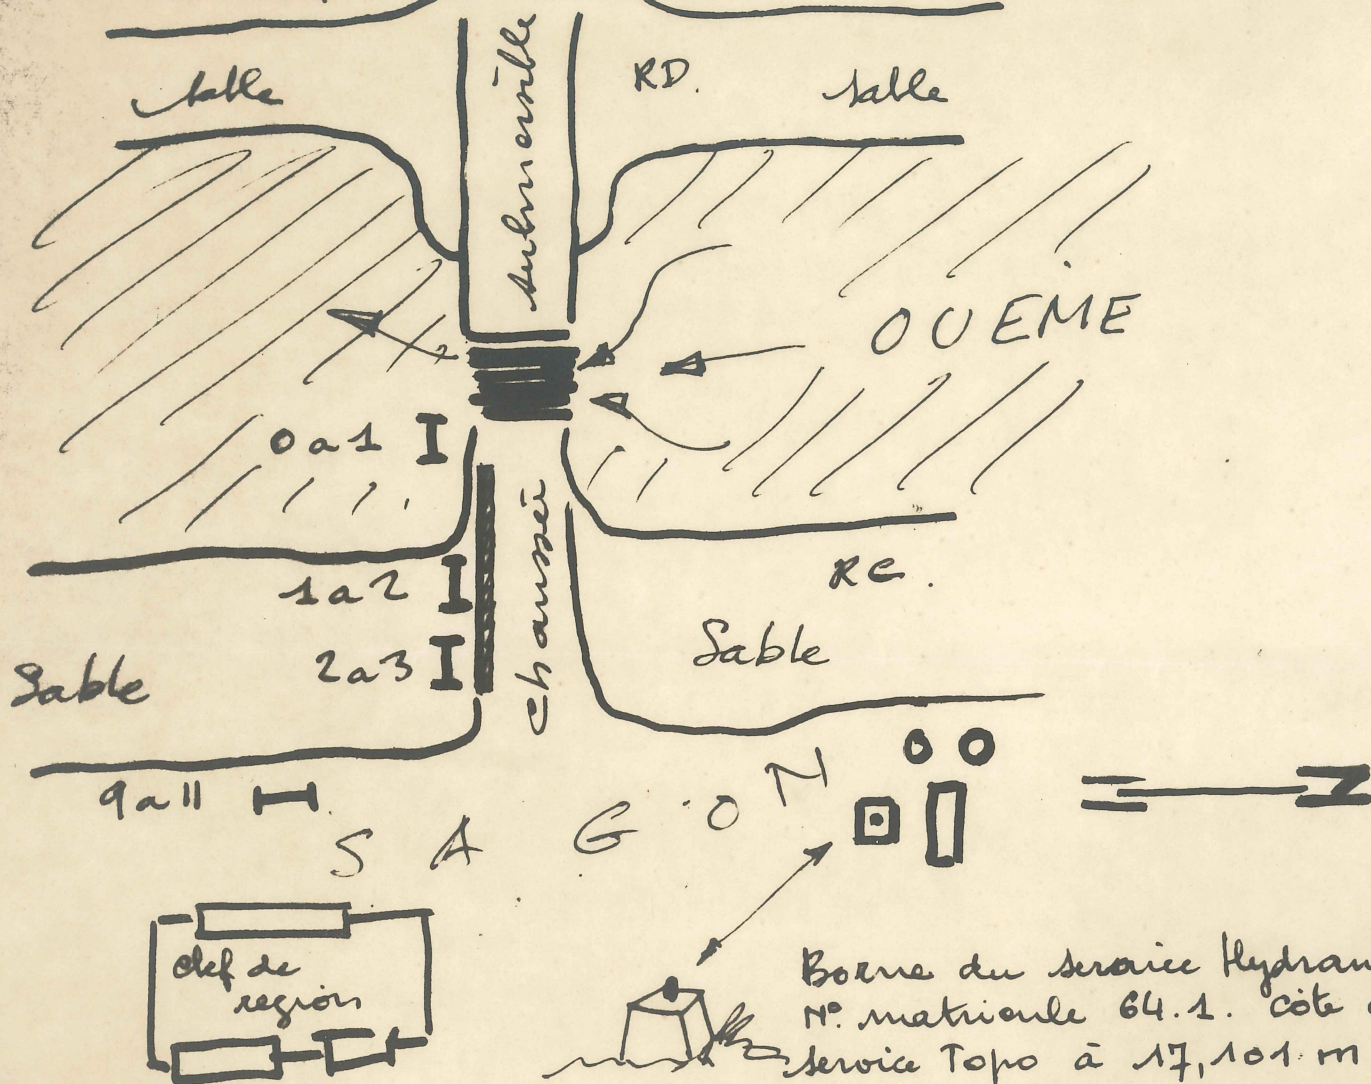 sable
submersible
RD.
sable
OUEME
0 a 1
chaussée
1 a 2
RG.
2 a 3
Sable
Sable
9 a 11
SAGON
N
chef de
region
Borne du service Hydrau
N° matricule 64.1. côte
service Topo à 17,101 m